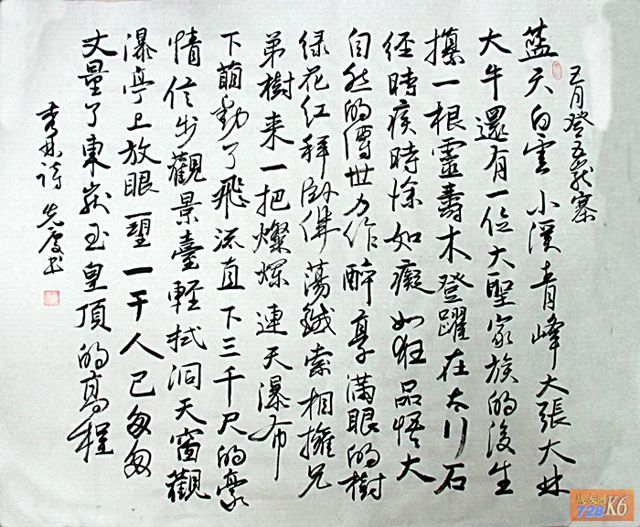 五月登五龙寨
藍天白雲小溪青峰大張大林
大牛還有一位大聖家族的後生
攥一根靈壽木登躍在太行石
径時疾時徐如癡如狂品悟大
自然的傳世力作醉享滿眼的樹
绿花红拜卧佛蕩鐵索相擁兄
弟樹来一把燦爛連天瀑布
下萌動了飛流直下三千尺的豪
情信步觀景臺輕拭洞天窗觀
瀑亭上放眼一望一干人已匆匆
丈量了東嶽玉皇頂的高程
秀林詩 先慶书
战友网
728 K6